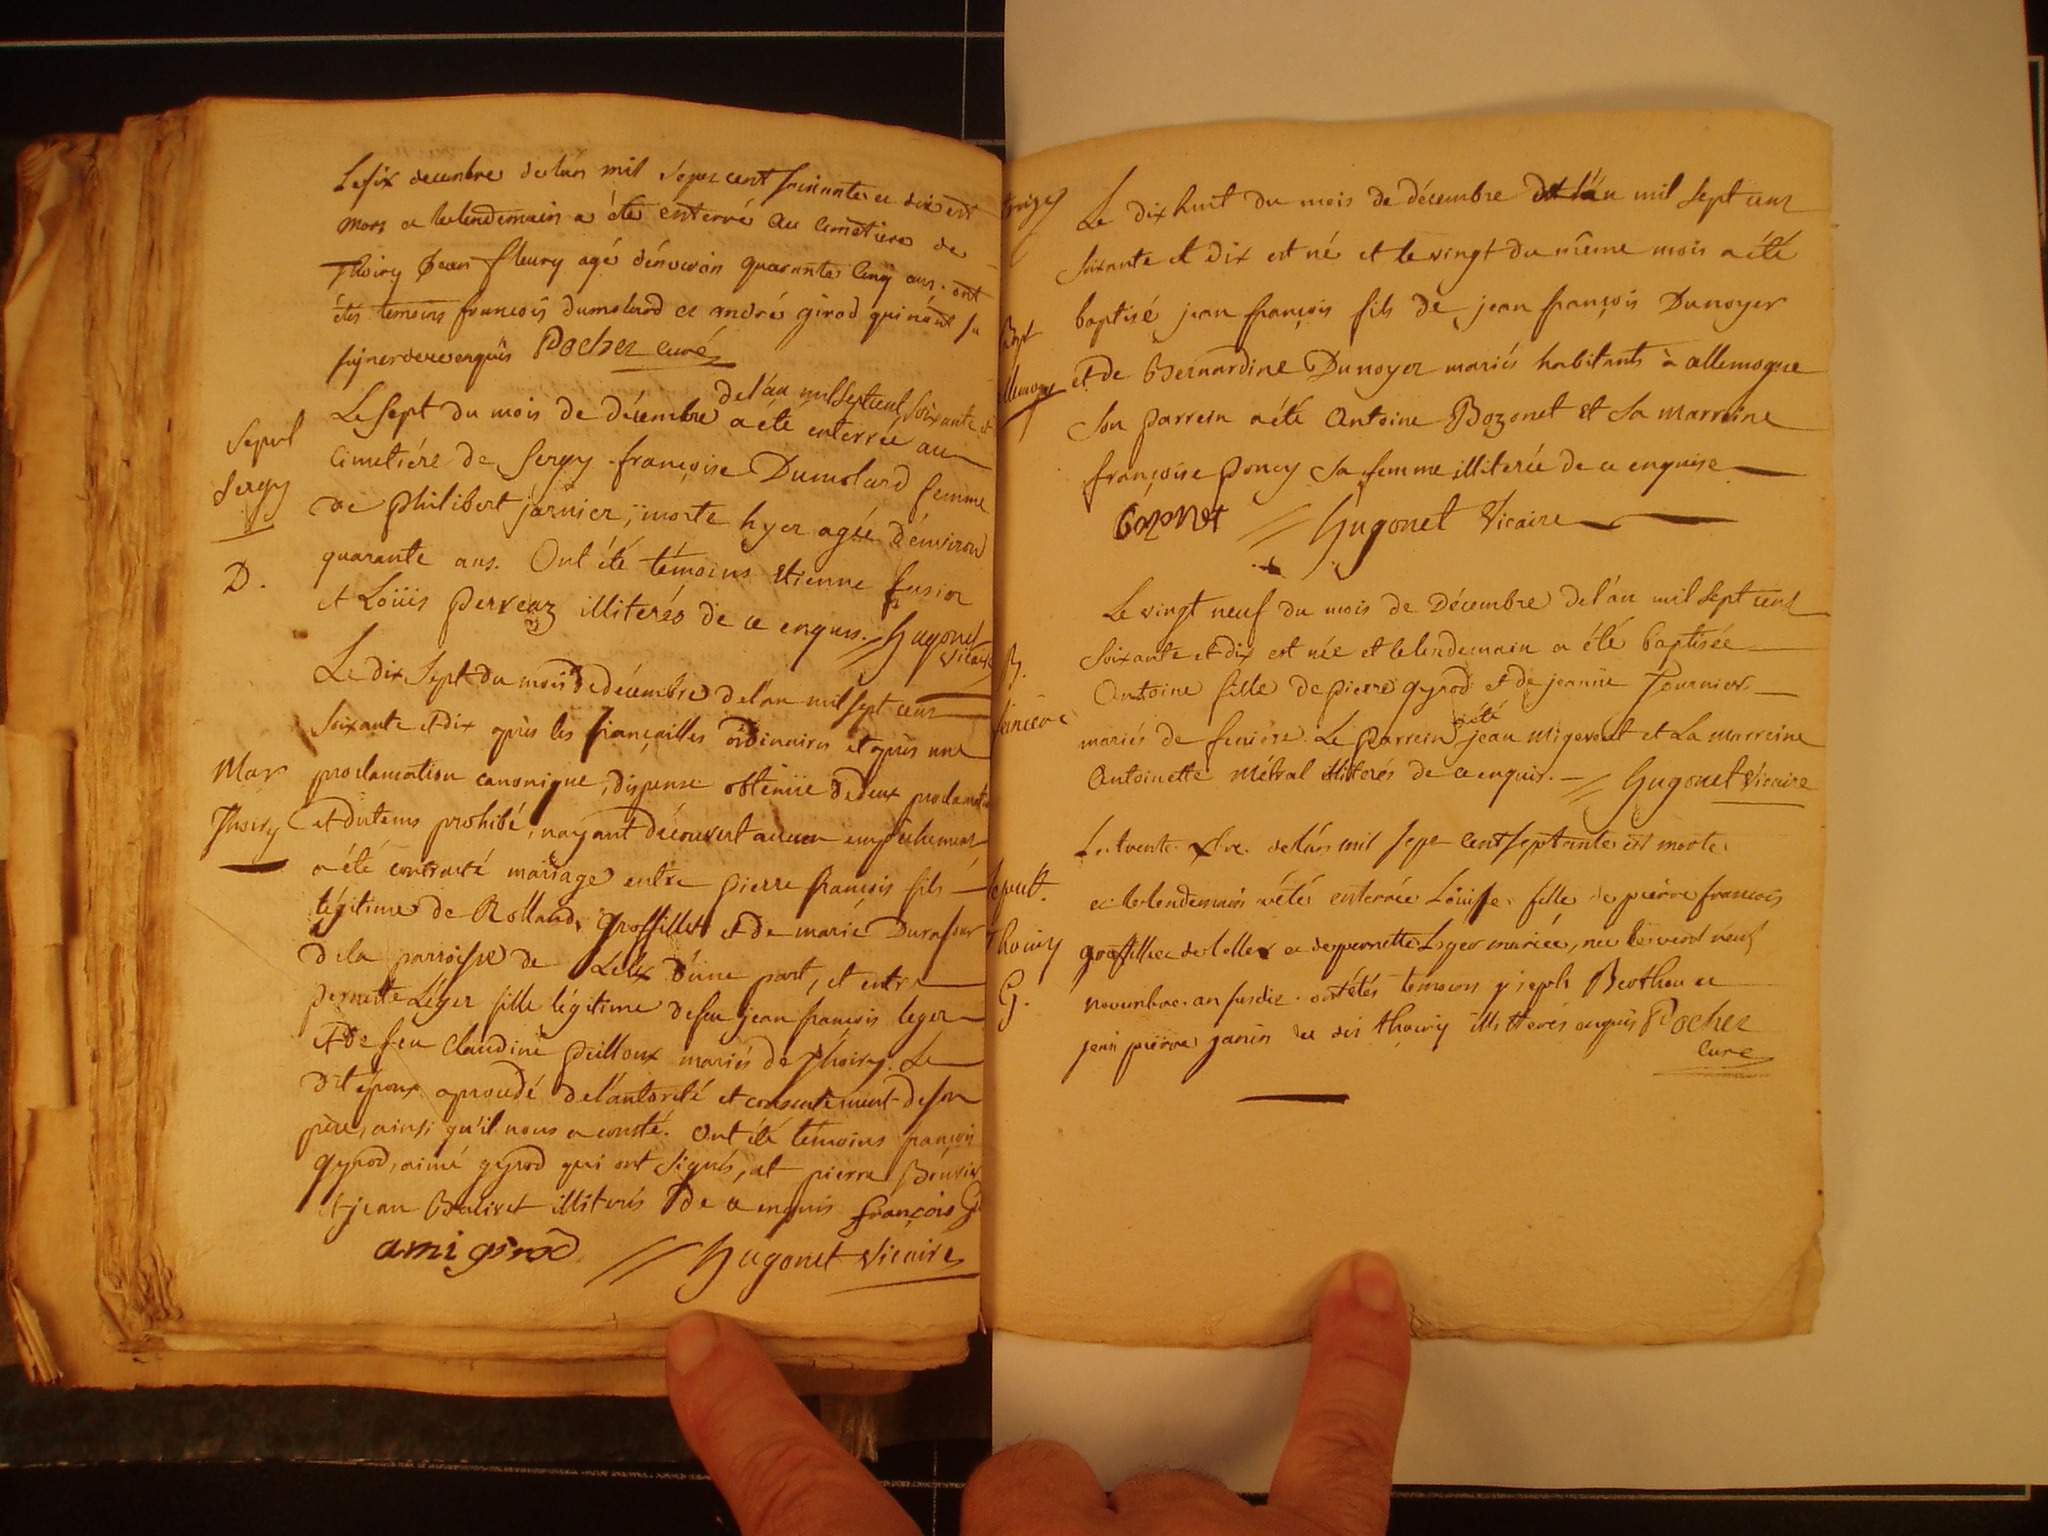 Le six decembre de lan mil sept cent soixante et dix est
mort et le lendemain a été enterré au cimetiere de
Thoiry jean fleury agé d'énviron quarante cinq ans. ont
étés temoins françois dumolard et andré girod qui n'ont su
signer de ce enquis Pochet curé
de l'an mil sept cent soixante et
Sepul
Sergy
D.
Le sept du mois de décembre a été enterrée au
Cimetiére de Sergy françoise Dumolard femme
de philibert jarnier, morte hyer agée d'énviron
quarante ans. Ont été témoins Etienne fusier
et Loüis perreaz illiterés de ce enquis. Hugonet
Vicaire
Mar
Thoiry
Le dix Sept du mois de décembre de l'an mil sept cent
soixante et dix après les fiançailles ordinaires et après une
proclamation canonique, dispense obtenüe de deux proclamat
et du tems prohibé, n'ayant découvert aucun empêchement
a été contracté mariage entre pierre françois fils
légitime de Rolland, Grosfillet et de marie Durafour
de la parroisse de Lelex d'une part, et entre
pernette Léger fille légitime de feu jean françois leger
et de feu claudine peilloux mariés de Thoiry. Le
dit époux aprouvé de l'autorité et consentement de son
père, ainsi qu'il nous a consté. Ont été témoins françois
gyrod, aimé gyrod qui ont signés, et pierre
et jean Balivet illiterés de ce enquis françois G
ami girod Hugonet Vicaire
Bapt
Le dix huit du mois de décembre de l'an mil sept cent
soixante et dix est né et le vingt du même mois a été
baptisé jean françois fils de jean françois Dunoyer
et de Bernardine Dunoyer mariés habitants à allemogne
Son parrein a été Antoine Bozonet et Sa marreine
françoise poncy Sa femme illiterée de ce enquise
Bozonet Hugonet Vicaire
B.
Le vingt neuf du mois de décembre de l'an mil sept cent
soixante et dix est née et le lendemain a été baptisée
Antoine fille de pierre gyrod et de jeanne Fournier
mariés de feniére. Le parrein a été jean migerent et La marreine
Antoinette métral illiterés de ce enquis. Hugonet Vicaire
sepult.
Thoiry
G.
Le trente xbre de lan mil sept cent septante est morte
et le lendemain a été enterrée Loüise fille de pierre françois
grosfillet de lellex et de pernette Leger mariée, née le vint neuf
novembre an susdit. ont étés temoins joseph Berthou et
jean pierre janin de dit thoiry illitterés enquis Pochet
Curé